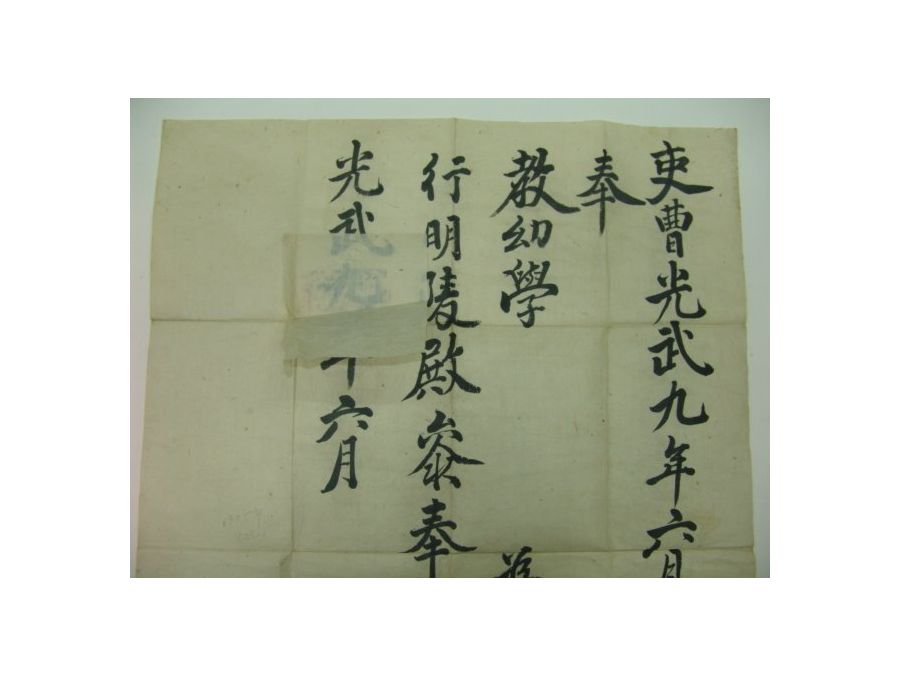 吏曹光武九年六月
奉
教幼學
行明陵殿叅奉
光武九年六月